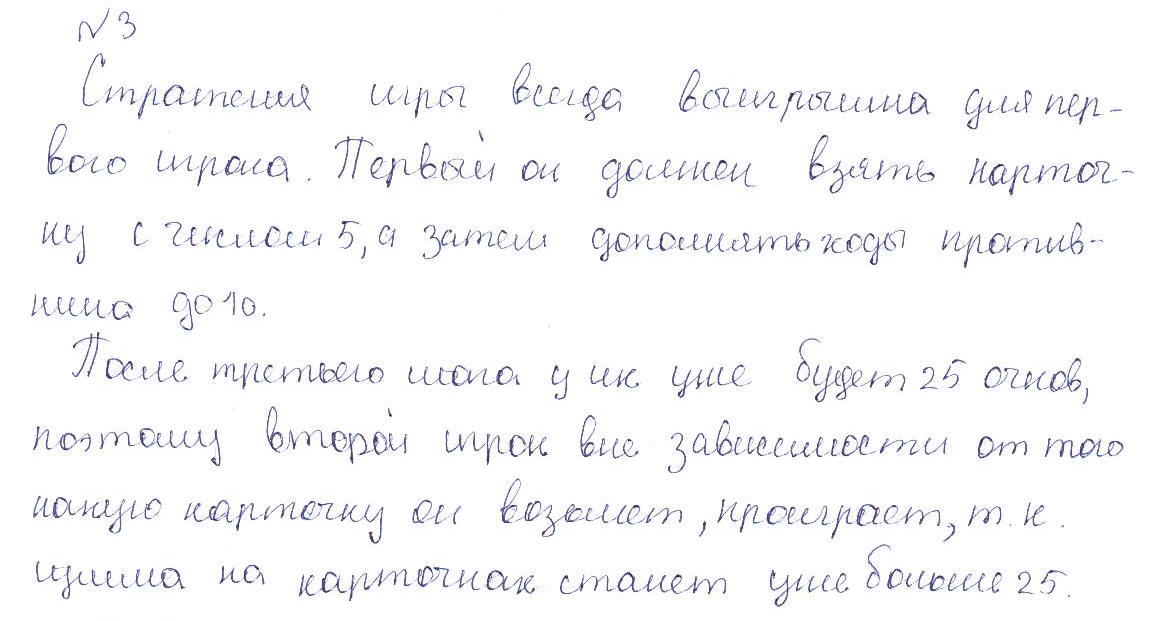 №3
Стратегия игры всегда выигрышна для пер-
вого игрока. Первый он должен взять карточ-
ку с числом 5, а затем дополнять ходы против-
ника до 10.
После третьего шага у них уже будет 25 очков,
поэтому второй игрок вне зависимости от того
какую карточку он возьмет, проиграет, т.к.
сумма на карточках станет уже больше 25.